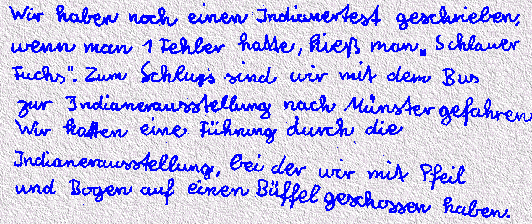 Wir haben noch einen Indianertest geschrieben,
wenn man 1 Fehler hatte, hieß man „Schlauer
Fuchs". Zum Schluss sind wir mit dem Bus
zur Indianerausstellung nach Münster gefahren
Wir hatten eine Führung durch die
Indianerausstellung, bei der wir mit Pfeil
und Bogen auf einen Büffel geschossen haben.